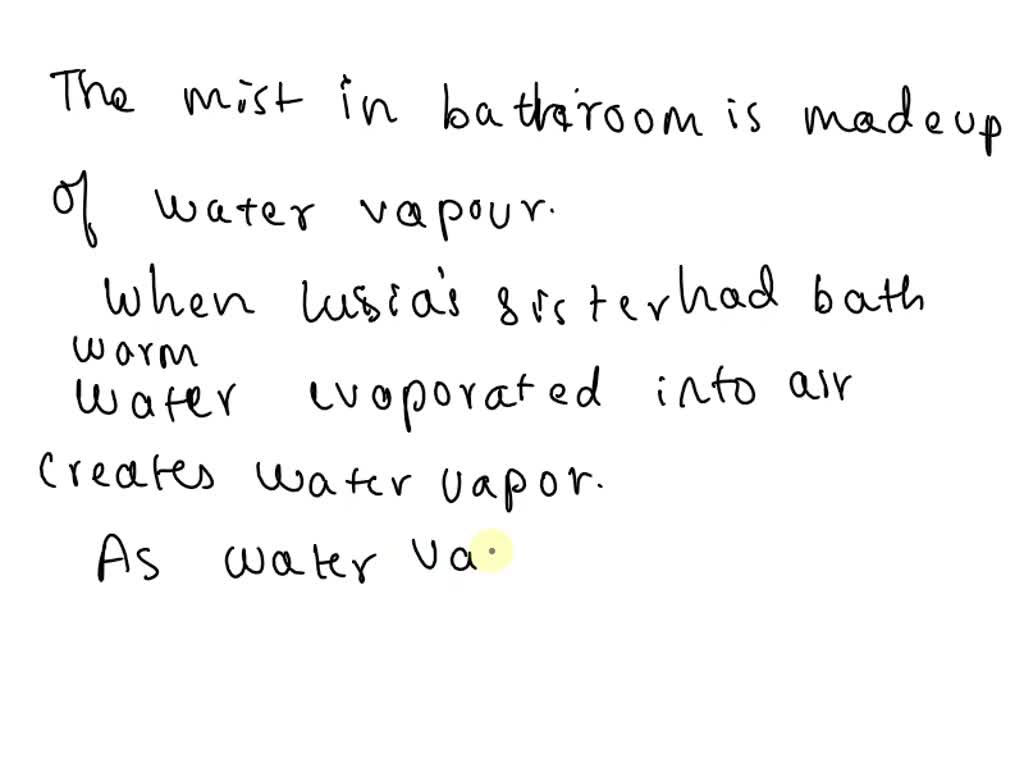 The mist in bathroom is made up
of water vapour.
When lusia's sister had bath
warm
water evaporated into air
creates water vapor.
As water va